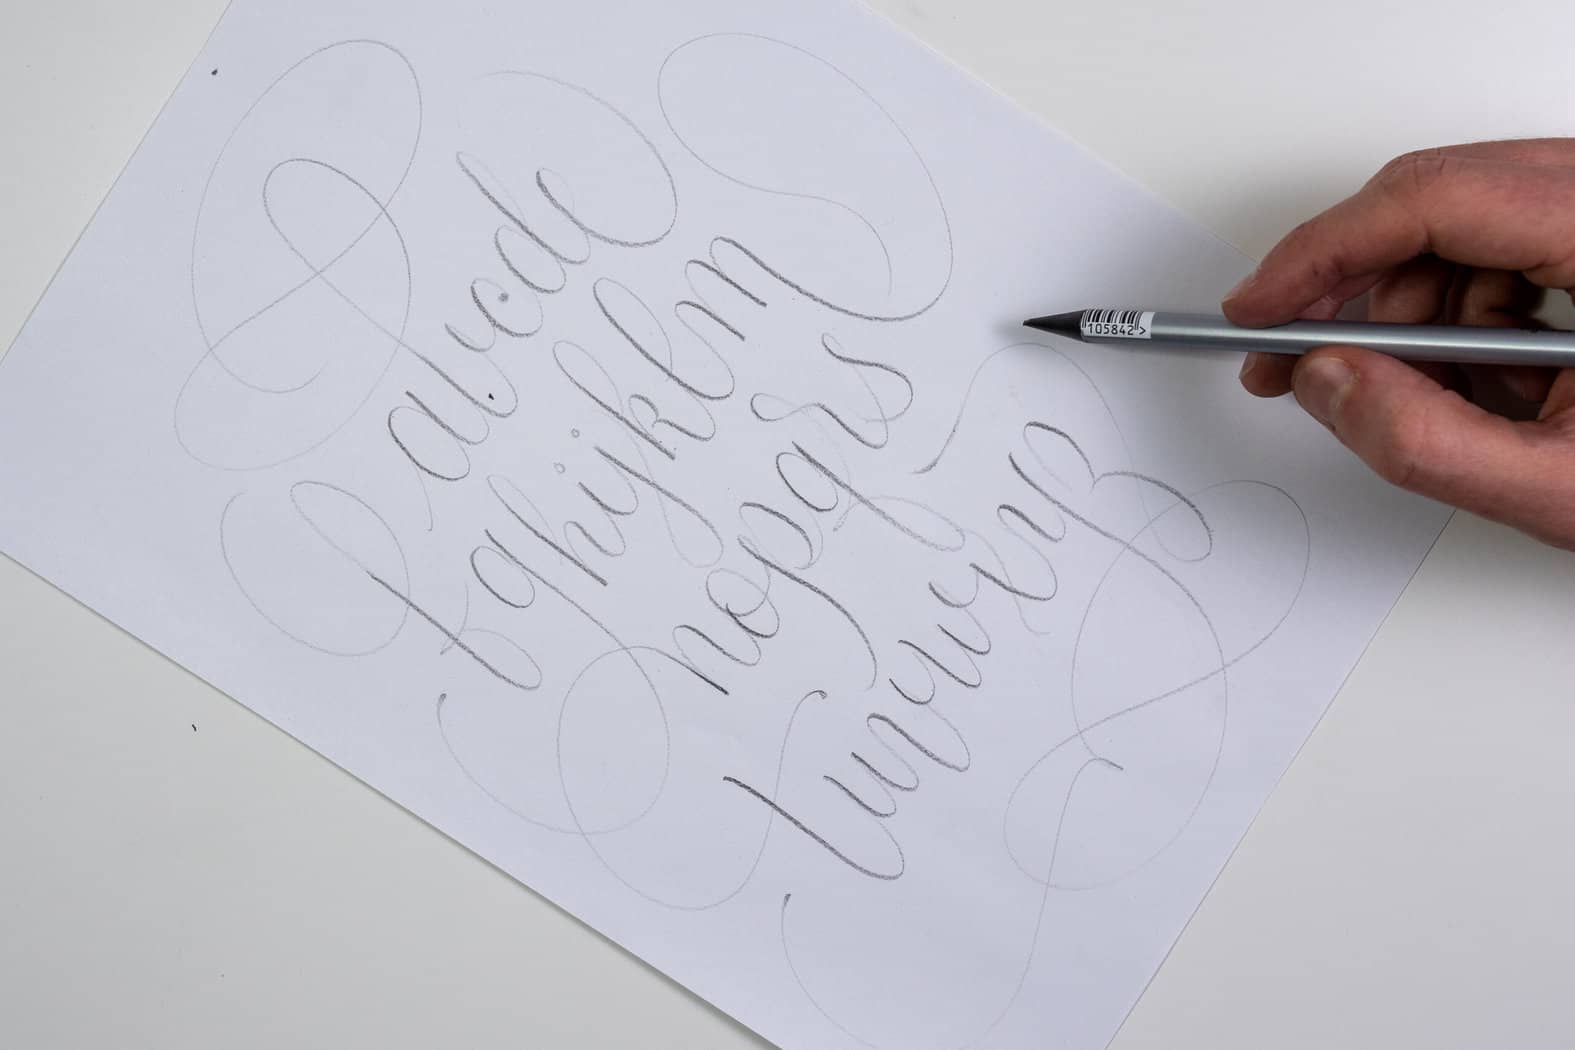 abcde
fghijklm
nopqrs
tuvwxyz
105842>